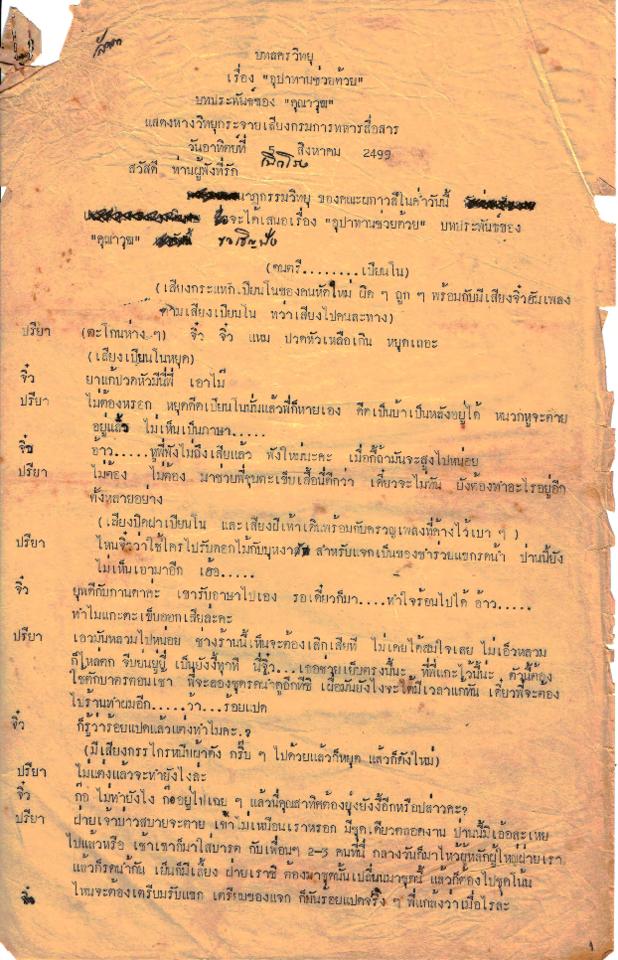 บทละครวิทยุ
เรื่อง "อุปาทานช่วยด้วย"
บทประพันธ์ของ "คุณาวุฒ"
แสดงทางวิทยุกระจายเสียงกรมการทหารสื่อสาร
วันอาทิตย์ที่ ๕ สิงหาคม 2499
สวัสดี ท่านผู้ฟังที่รัก
นาฏกรรมวิทยุ ของคณะผกาวลีในค่ำวันนี้
จะได้เสนอเรื่อง "อุปาทานช่วยด้วย" บทประพันธ์ของ
"คุณาวุฒ" ขอเชิญฟัง
(ดนตรี........เปียนโน)
(เสียงกระแทกเปียนโนของคนหัดใหม่ ผิด ๆ ถูก ๆ พร้อมกับมีเสียงจิ๋วฮัมเพลง
ตามเสียงเปียนโน ทว่าเสียงไปคนละทาง)
ปรียา (ตะโกนห่าง ๆ) จิ๋ว จิ๋ว แหม ปวดหัวเหลือเกิน หยุดเถอะ
(เสียงเปียนโนหยุด)
จิ๋ว ยาแก้ปวดหัวมีนี่พี่ เอาไม๊
ปรียา ไม่ต้องหรอก หยุดดีดเปียนโนนั่นแล้วพี่ก็หายเอง ดีดเป็นบ้าเป็นหลังอยู่ได้ หนวกหูจะตาย
อยู่แล้ว ไม่เห็นเป็นภาษา.....
จิ๋ว อ้าว.....หูพี่ฟังไม่ถึงเสียแล้ว ฟังใหม่นะคะ เมื่อกี้ถ้ามันจะสูงไปหน่อย
ปรียา ไม่ต้อง ไม่ต้อง มาช่วยพี่ชุนตะเข็บเสื้อนี่ดีกว่า เดี๋ยวจะไม่ทัน ยังต้องทำอะไรอยู่อีก
ตั้งหลายอย่าง
(เสียงปิดฝาเปียนโน และเสียงฝีเท้าเดินพร้อมกับครวญเพลงที่ค้างไว้เบา ๆ)
ปรียา ไหนจิ๋วว่าใช้ใครไปรับดอกไม้กับบุหงา สำหรับแจกเป็นของชำร่วยแขกรดน้ำ ป่านนี้ยัง
ไม่เห็นเอามาอีก เฮ้อ.....
จิ๋ว ยุพดีกับกานดาค่ะ เขารับอาษาไปเอง รอเดี๋ยวก็มา....ทำใจร้อนไปได้ อ้าว.....
ทำไมแกะตะเข็บออกเสียล่ะคะ
ปรียา เอวมันหลวมไปหน่อย ช่างร้านนี้เห็นจะต้องเลิกเสียที ไม่เคยได้สมใจเลย ไม่เอ็วหลวม
ก็ไหล่ตก จีบย่นยู่ยี่ เป็นยังงี้ทุกที นี่จิ๋ว...เธอช่วยเย็บตรงนี้นะ ที่พี่แกะไว้นี่น่ะ ตัวนี้ต้อง
ใช้ตักบาตรตอนเช้า พี่จะลองชุดรดน้ำดูอีกทีซิ เผื่อมันยังไงจะได้มีเวลาแก้ทัน เดี๋ยวพี่จะต้อง
ไปร้านทำผมอีก.....ว้า...รอยแปด
จิ๋ว ก็รู้ว่าร้อยแปดแล้วแต่งทำไมคะ.?
(มีเสียงกรรไกรหนีบผ้าดัง กริ๊บ ๆ ไปด้วยแล้วก็หยุด แล้วก็ดังใหม่)
ปรียา ไม่แต่งแล้วจะทำยังไงล่ะ
จิ๋ว ก้อ ไม่ทำยังไง ก้ออยู่ไปเฉย ๆ แล้วนี่คุณสาทิศต้องยุ่งยังงี้อีกหรือปล่าวคะ?
ปรียา ฝ่ายเจ้าบ่าวสบายจะตาย เขาไม่เหมือนเราหรอก มีชุดเดียวตลอดงาน ป่านนี้มิเอ้อละเหย
ไปแล้วหรือ เช้าเขาก็มาใส่บาตร กับเพื่อนๆ 2-3 คนที่นี่ กลางวันก็มาไหว้ผู้หลักผู้ใหญ่ฝ่ายเรา
แล้วก็รดน้ำกัน เย็นก็มีเลี้ยง ฝ่ายเราซิ ต้องมาชุดนั้นเปลี่ยนมาชุดนี้ แล้วก็ต้องไปชุดโน้น
ไหนจะต้องเตรียมรับแขก เตรียมของแจก ก็มันร้อยแปดจริง ๆ พี่แกล้งว่าเมื่อไรล่ะ
จิ๋ว